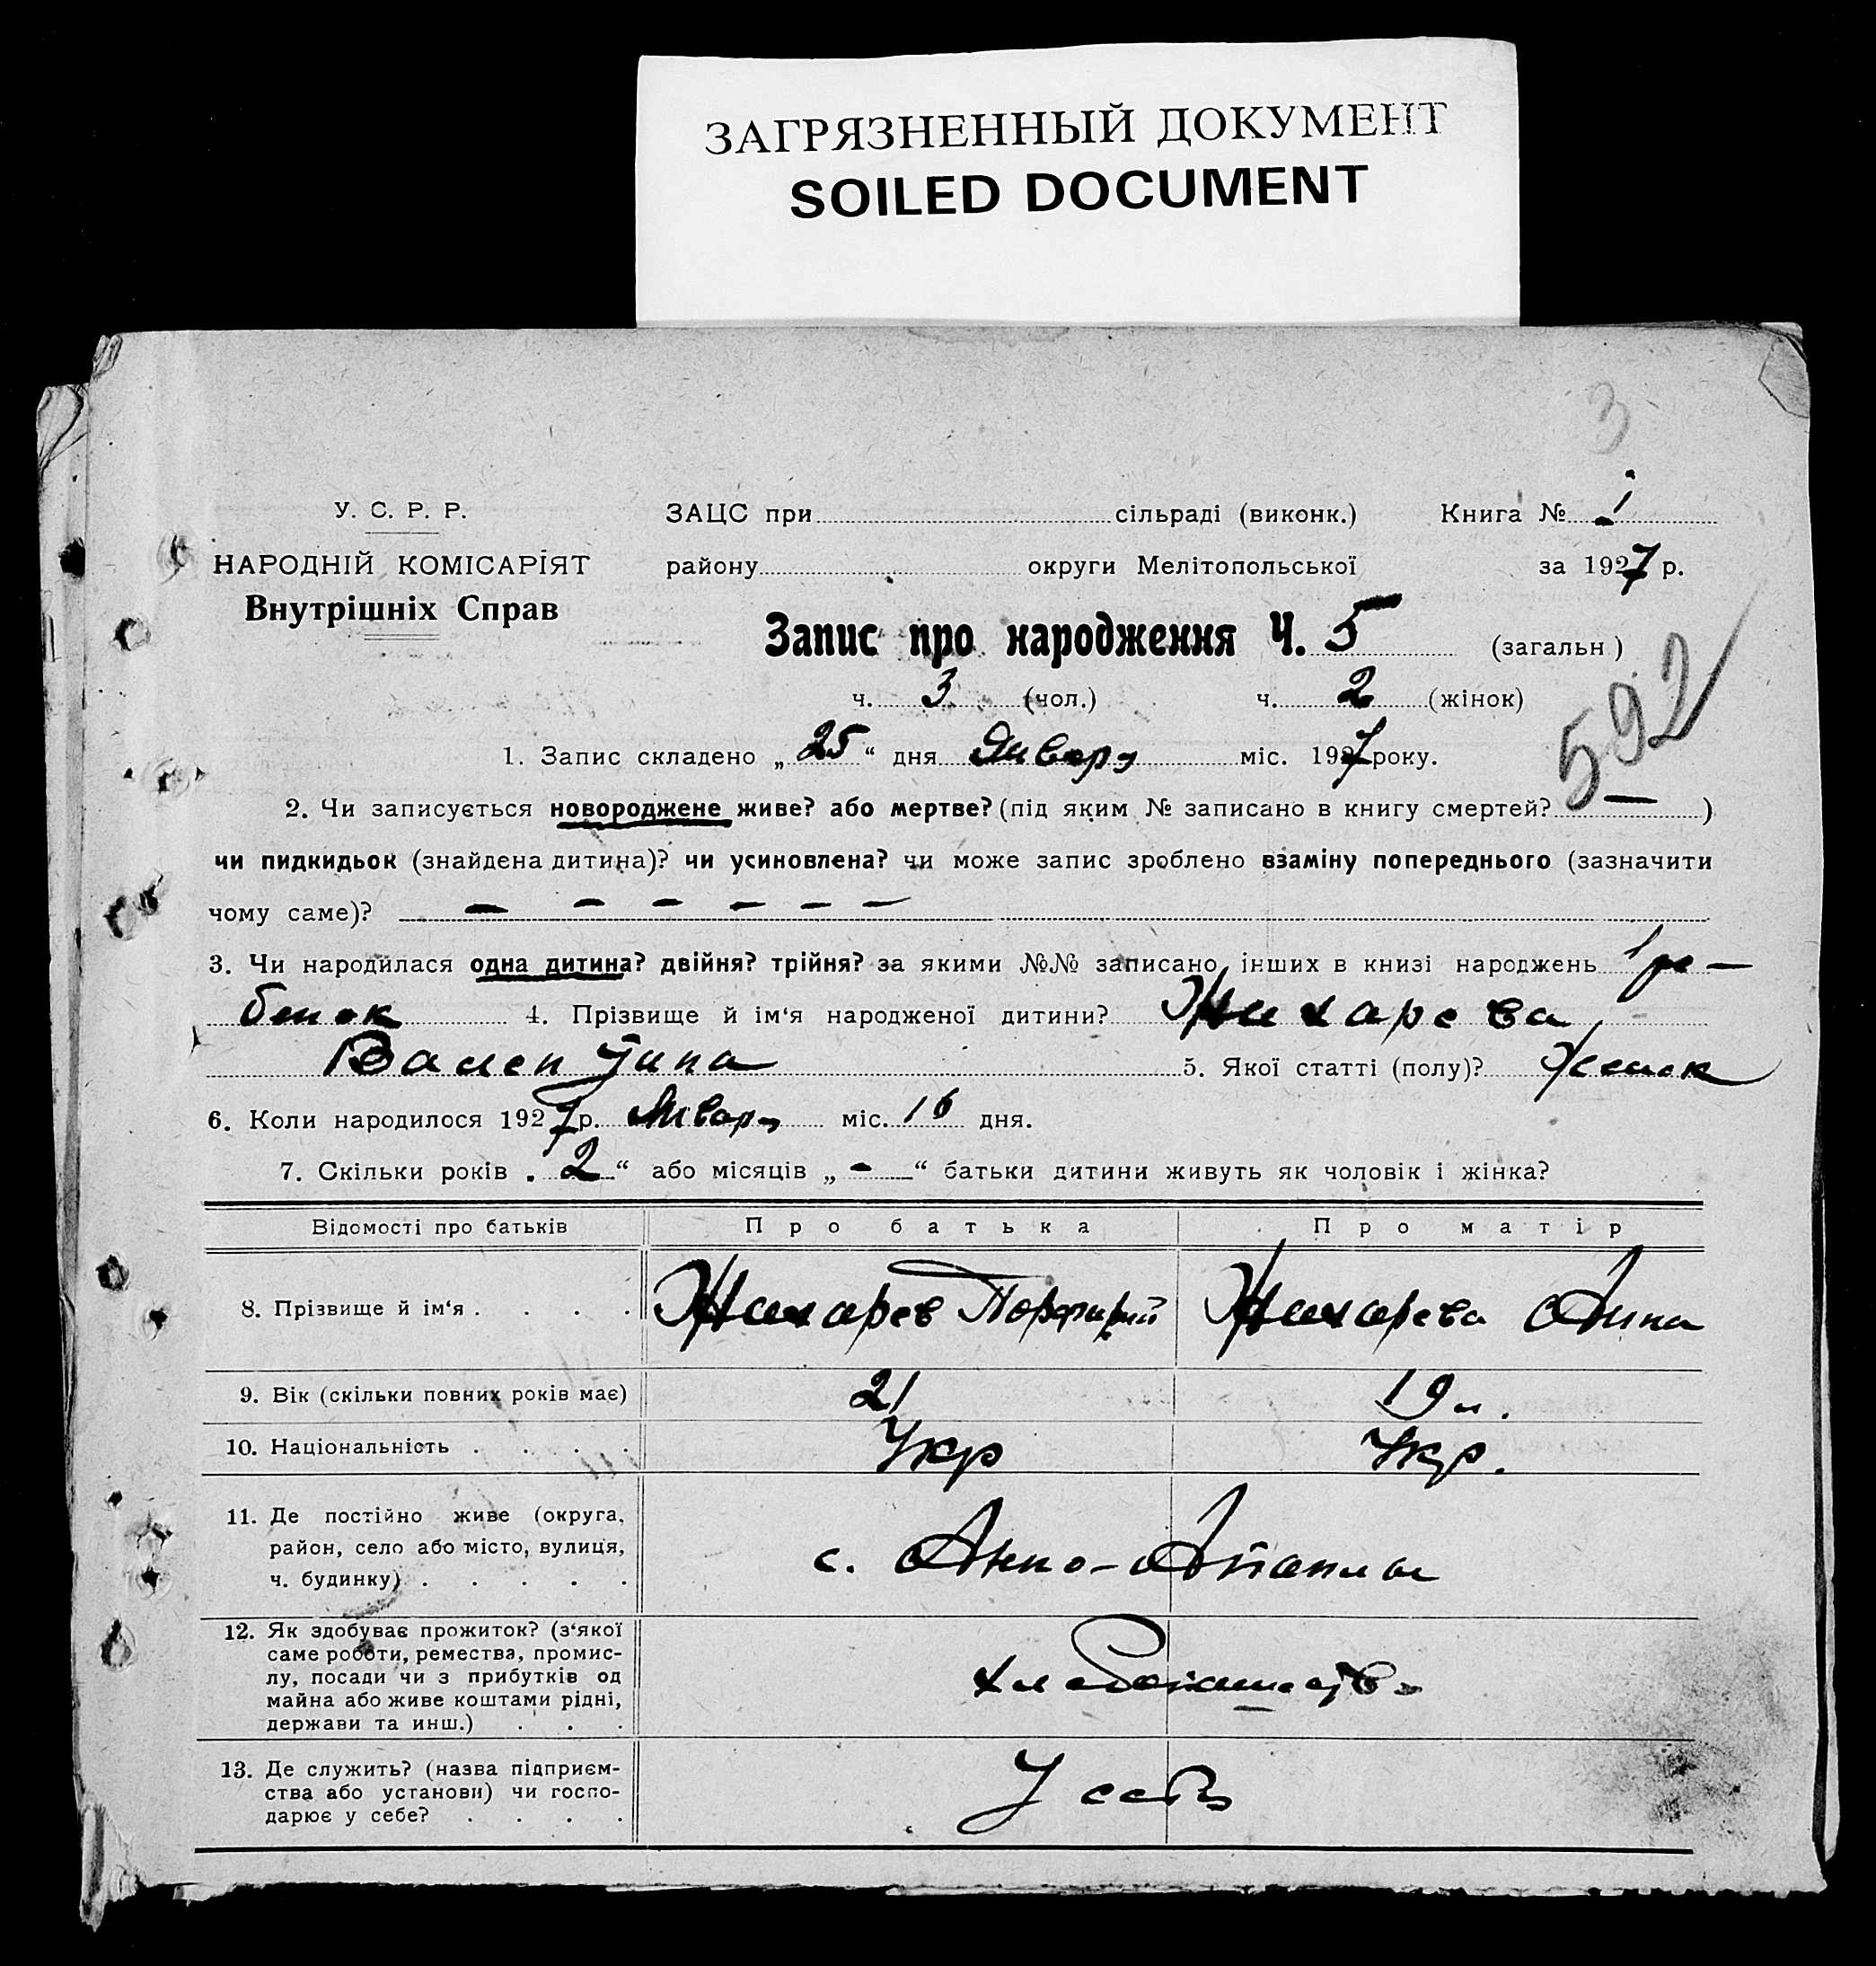 ЗАГРЯЗНЕННЫЙ ДОКУМЕНТ
SOILED DOCUMENT
3
У. С. Р. Р.
ЗАЦС при сільраді (виконк.) Книга № 1
НАРОДНІЙ КОМІСАРІЯТ
району округи Мелітопольської за 1927 р.
Внутрішніх Справ
Запис про народження Ч. 5 (загальн)
ч. 3 (чол.) ч. 2 (жінок)
592
1. Запис складено „25“ дня Январ міс. 1927 року.
2. Чи записується новороджене живе? або мертве? (під яким № записано в книгу смертей? — )
чи пидкидьок (знайдена дитина)? чи усиновлена? чи може запис зроблено взаміну попереднього (зазначити
чому саме)? — — — — — —
3. Чи народилася одна дитина? двійня? трійня? за якими №№ записано інших в книзі народжень 1 ре-
бенок 4. Прізвище й ім‘я народженої дитини? Жихарева
Валентина 5. Якої статті (полу)? Женск
6. Коли народилося 1927 р. Январ міс. 16 дня.
7. Скільки років „2“ або місяців „-“ батьки дитини живуть як чоловік і жінка?
Відомості про батьків Про батька Про матір
8. Прізвище й ім‘я . . . . Жихарев Порфирий Жихарева Анна
9. Вік (скільки повних років має) 21 19 л.
10. Національність . . . . Укр Укр.
11. Де постійно живе (округа,
район, село або місто, вулиця,
ч. будинку) . . . . . с. Анно-
12. Як здобуває прожиток? (з‘якої
саме роботи, ремества, промис-
лу, посади чи з прибутків од
майна або живе коштами рідні,
держави та инш.) . . .
13. Де служить? (назва підприєм-
ства або установи) чи госпо-
дарює у себе? . . . . У себ